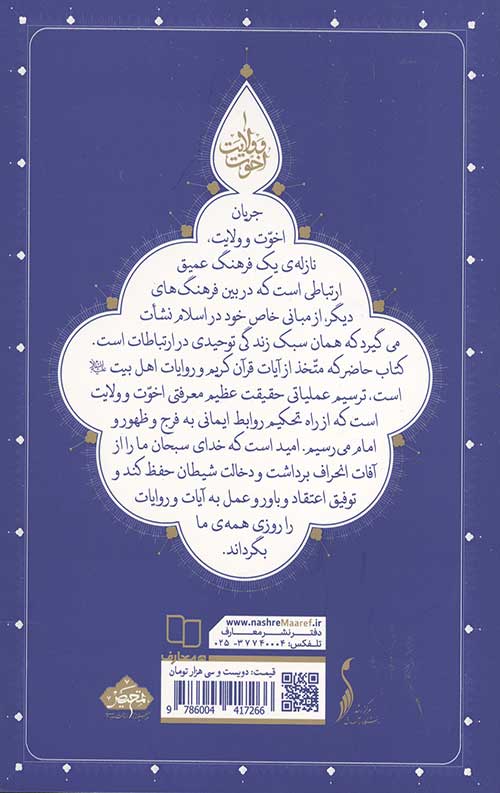 اخوّت
و ولایت
۱
جریان
اخوّت و ولایت،
نازله‌ی یک فرهنگ عمیق
ارتباطی است که در بین فرهنگ‌های
دیگر، از مبانی خاص خود در اسلام نشأت
می گیرد که همان سبک زندگی توحیدی در ارتباطات است.
کتاب حاضر که متّخذ از آیات قرآن کریم و روایات اهل بیت
است، ترسیم عملیاتی حقیقت عظیم معرفتی اخوّت و ولایت
است که از راه تحکیم روابط ایمانی به فرج و ظهور و
امام می‌رسیم. امید است که خدای سبحان ما را از
آفات انحراف برداشت و دخالت شیطان حفظ کند و
توفیق اعتقاد و باور و عمل به آیات و روایات
را روزی همه‌ی ما
بگرداند.
www.nashreMaaref.ir
دفتر نشر معارف
تلفکس: ۳۷۷۴۰۰۰۴ - ۰۲۵
معارف
قیمت: دویست و سی هزار تومان
9 786004 417266